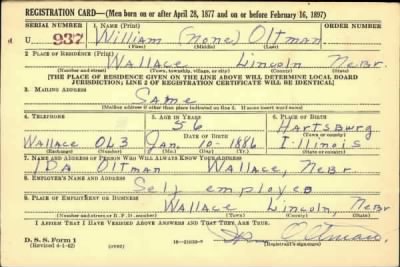 REGISTRATION CARD—(Men born on or after April 28, 1877 and on or before February 16, 1897)
SERIAL NUMBER 1. NAME (Print) ORDER NUMBER
U 937 William (None) Oltman
(First) (Middle) (Last)
2. PLACE OF RESIDENCE (Print)
Wallace Lincoln Nebr.
(Number and street) (Town, township, village, or city) (County) (State)
[THE PLACE OF RESIDENCE GIVEN ON THE LINE ABOVE WILL DETERMINE LOCAL BOARD
JURISDICTION; LINE 2 OF REGISTRATION CERTIFICATE WILL BE IDENTICAL]
3. MAILING ADDRESS
Same
[Mailing address if other than place indicated on line 2. If same insert word same]
4. TELEPHONE 5. AGE IN YEARS 6. PLACE OF BIRTH
56 Hartsburg
DATE OF BIRTH (Town or county)
Wallace OL3 Jan. 10- 1886 Illinois
(Exchange) (Number) (Mo.) (Day) (Yr.) (State or country)
7. NAME AND ADDRESS OF PERSON WHO WILL ALWAYS KNOW YOUR ADDRESS
IDA Oltman Wallace, Nebr.
8. EMPLOYER'S NAME AND ADDRESS
Self employed
9. PLACE OF EMPLOYMENT OR BUSINESS
Wallace Lincoln, Nebr
(Number and street or R. F. D. number) (Town) (County) (State)
I AFFIRM THAT I HAVE VERIFIED ABOVE ANSWERS AND THAT THEY ARE TRUE.
D. S. S. Form 1
(Revised 4-1-42) (over) Oltman
(Registrant's signature)